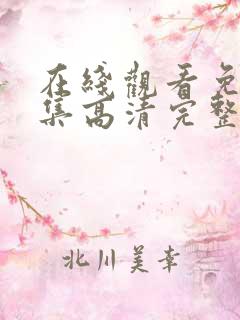 在綫觀看免
集高清完整
北川美幸